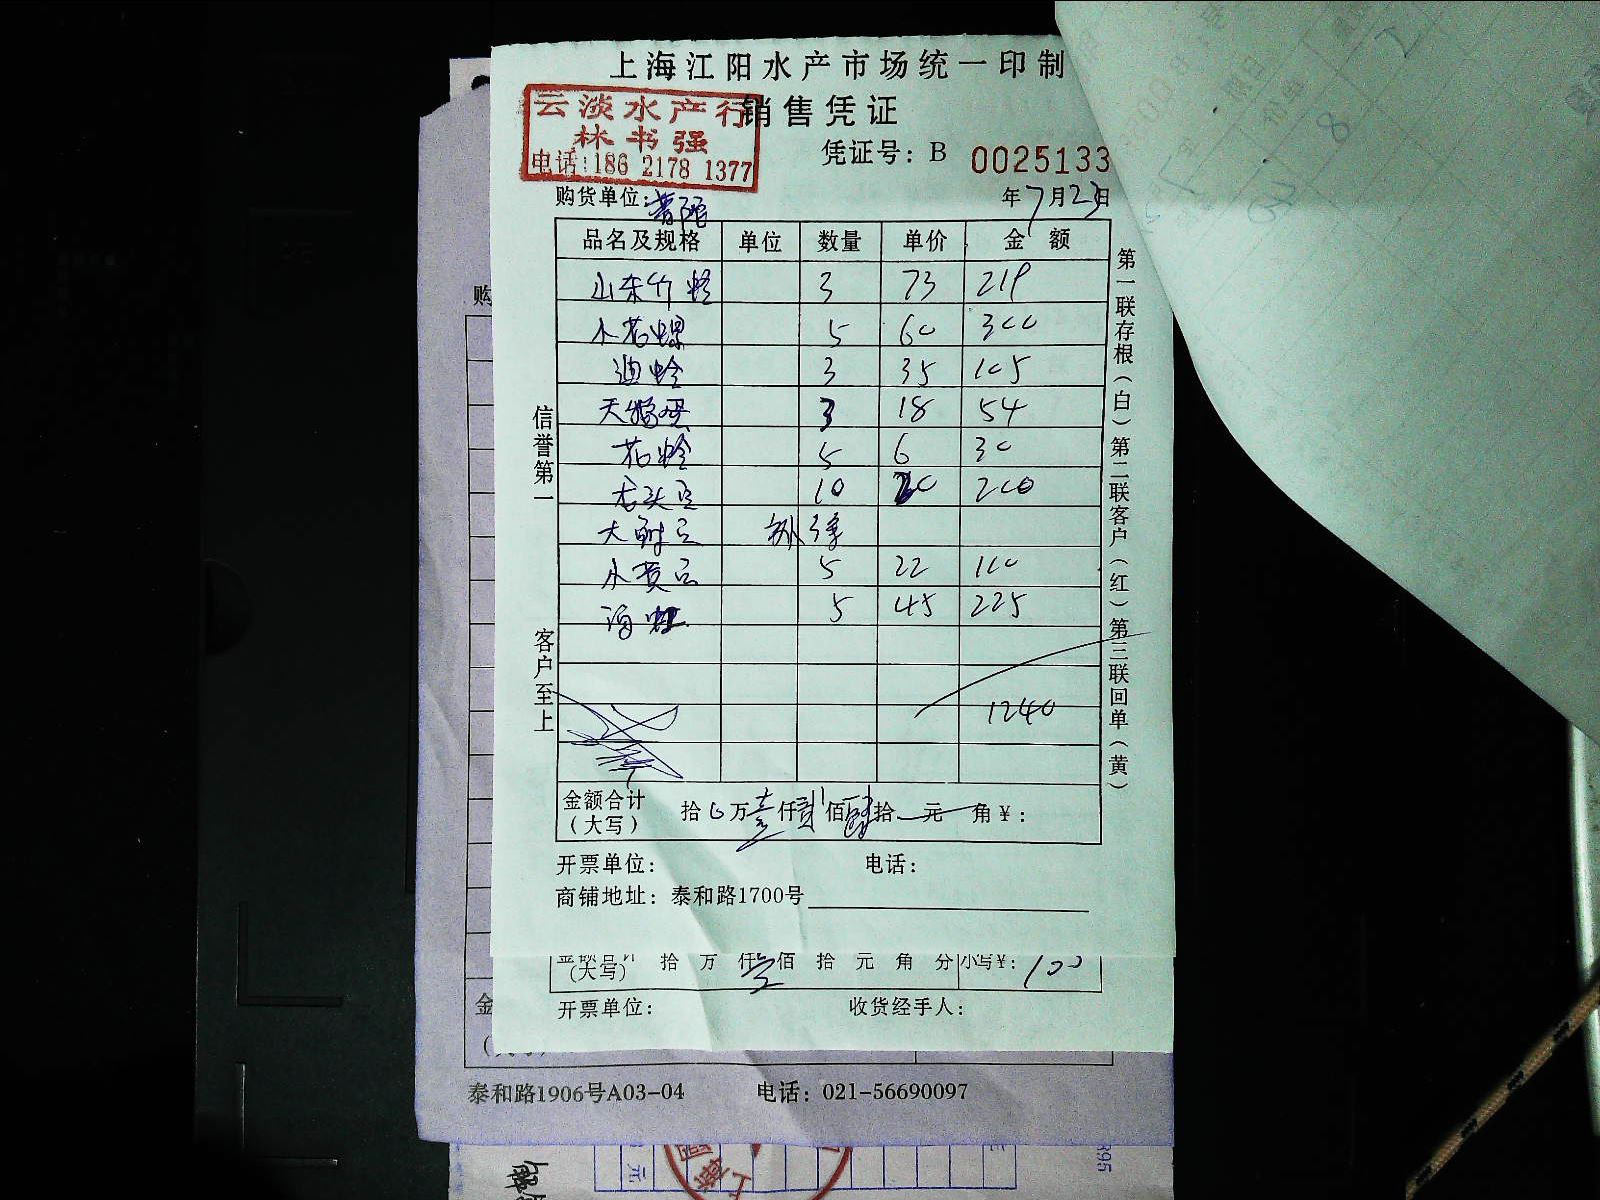 上海江阳水产市场统一印制
销售凭证
云淡水产行
林书强
电话:186 2178 1377
凭证号: B 0025133
购货单位: 普陀
年7月23日
品名及规格 单位 数量 单价 金额
山东竹蛏 3 73 219
小花螺 5 60 300
迪蛤 3 35 105
天鹅蛋 3 18 54
花蛤 5 6 30
龙头豆 10 20 200
大 豆
小黄豆 5 22 110
海虹 5 45 225
1240
金额合计
(大写)
拾 万壹仟贰佰肆拾 元 角¥:
开票单位: 电话:
商铺地址: 泰和路1700号
信誉第一
客户至上
第一联存根(白)第二联客户(红)第三联回单(黄)
金额合计
(大写) 拾 万 仟壹佰 拾 元 角 分 小写¥: 100
开票单位: 收货经手人:
购
金
泰和路1906号A03-04 电话: 021-56690097
元
395